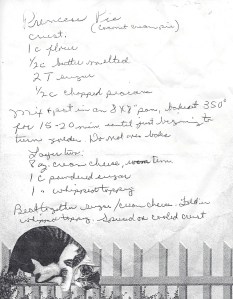 Princess Pie
(coconut cream pie)
crust:
1 c flour
1/2 c butter melted
2 T sugar
1/2 c chopped pecans
Mix & pat in an 8x8" pan, bake at 350°
for 15-20 min until just beginning to
turn golden. Do not over bake
Layer two:
8 oz cream cheese,
1 c powdered sugar
1 " whipped topping
Beat together sugar/cream cheese. Fold in
whipped topping. Spread on cooled crust